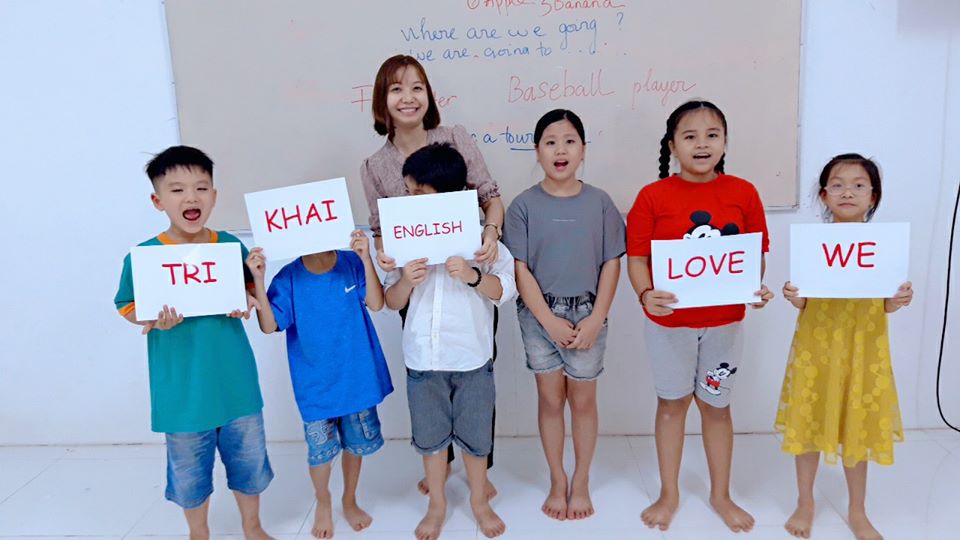 Apple 3 Banana
Where are we going ?
We are going to . . . . . .
Baseball player
a
TRI
KHAI
ENGLISH
LOVE
WE